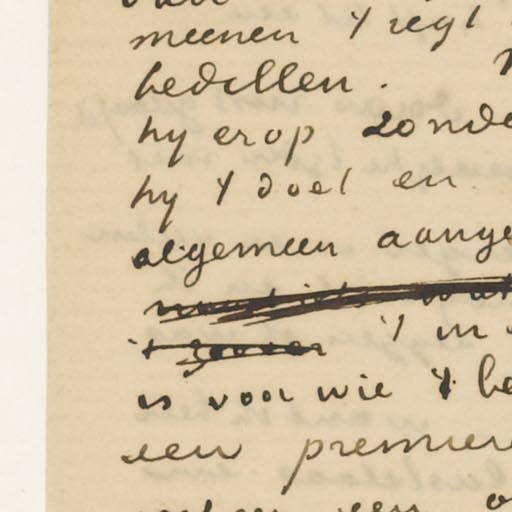 meenen 't regt
bedillen.
hy erop zonde
hy 't doel en
algemeen aange
't in
is voor wie 't be
een premier